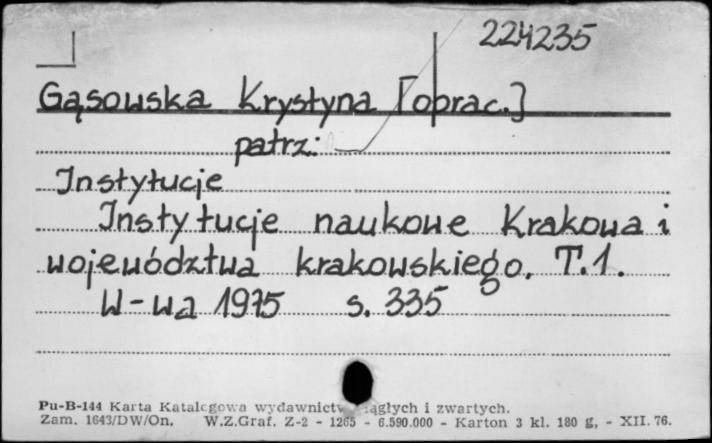 224235
Gąsowska Krystyna [oprac.]
patrz:
Instytucje
Instytucje naukowe Krakowa i
województwa krakowskiego. T.1.
W-wa 1975 s. 335
Pu-B-144 Karta Katalogowa wydawnictw ciągłych i zwartych.
Zam. 1643/DW/On. W.Z.Graf. Z-2 - 1265 - 6.590.000 - Karton 3 kl. 180 g, - XII. 76.